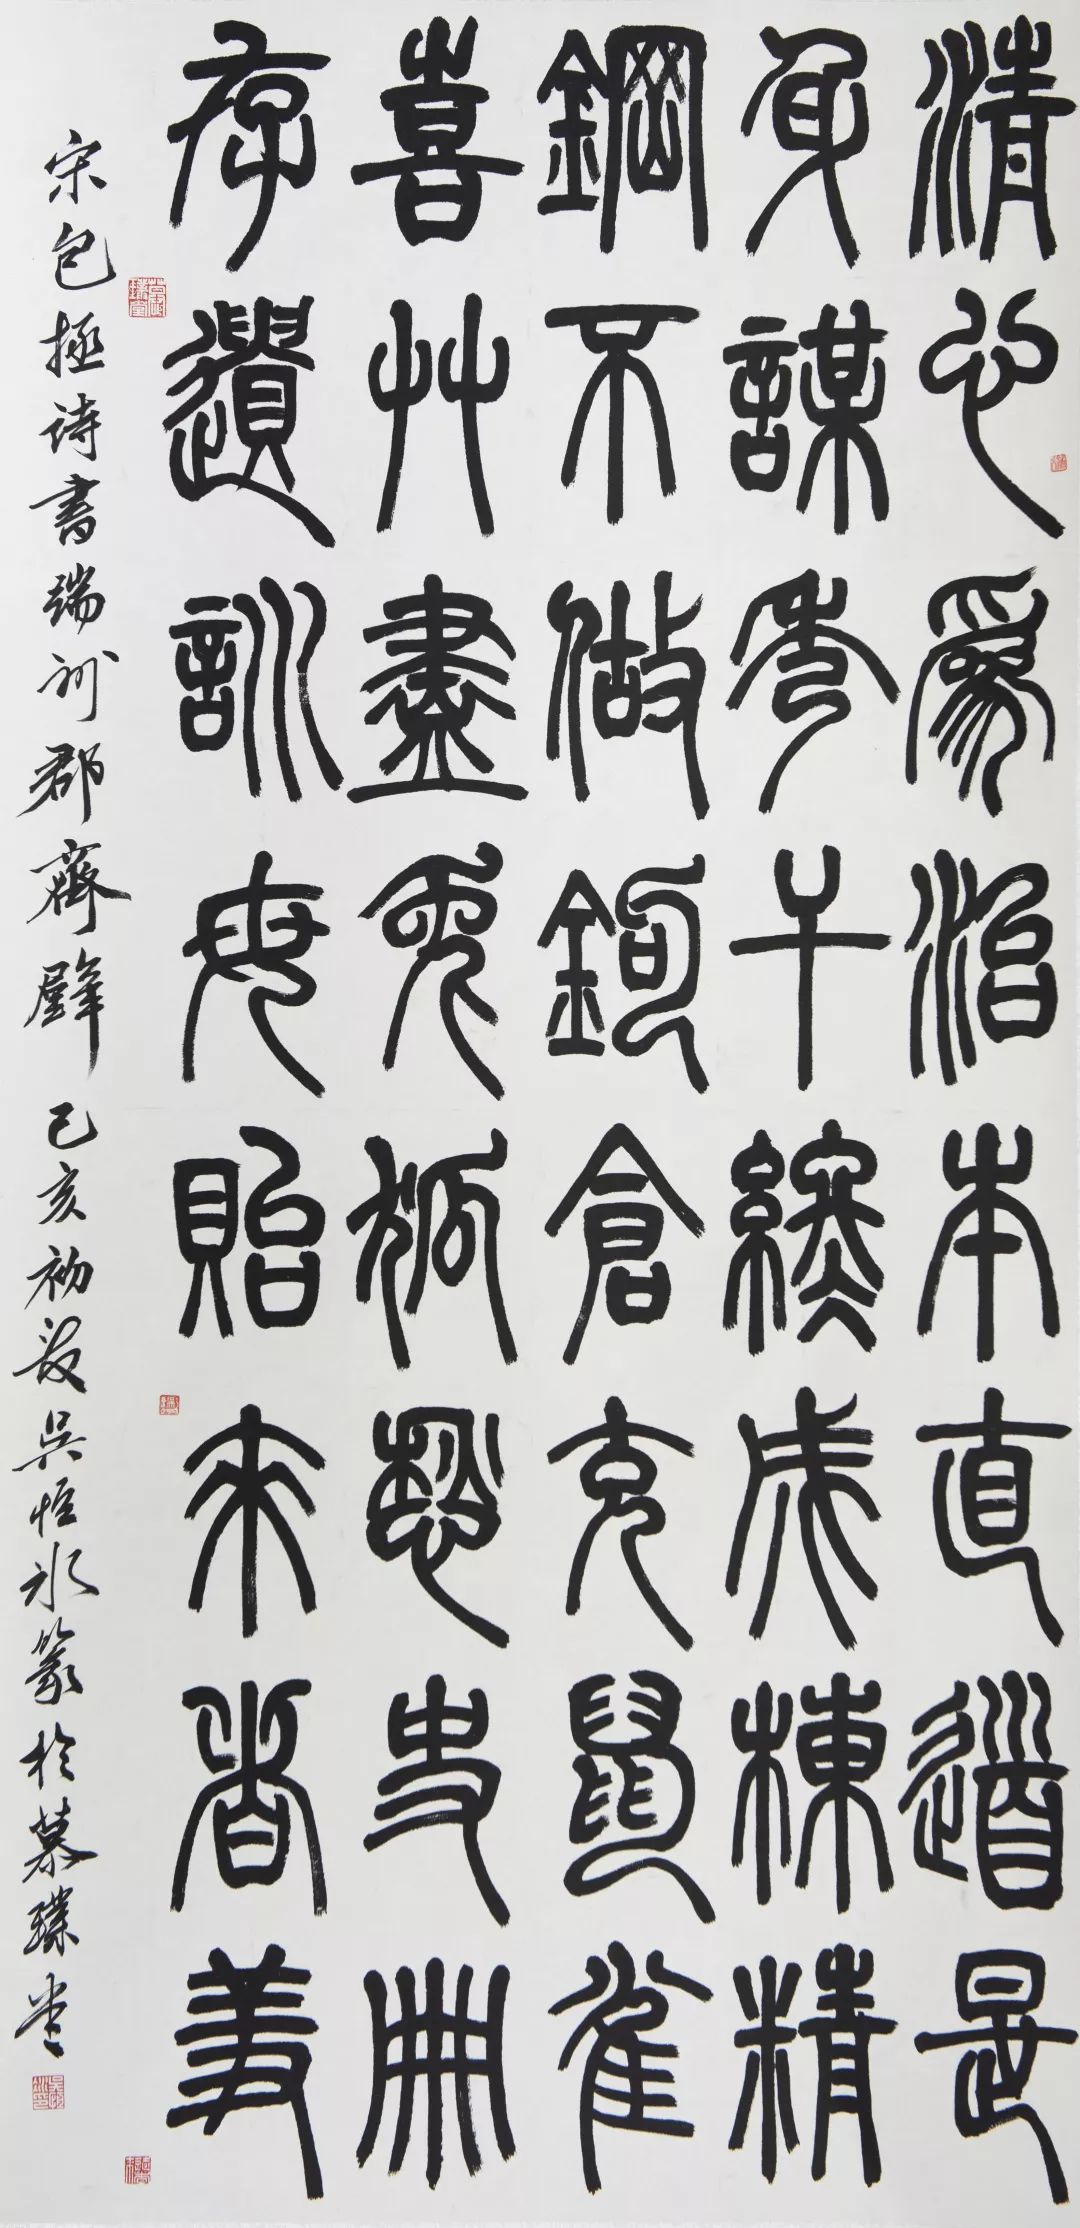 清心爲治本直道是
身謀秀干終成棟精
鋼不做鉤倉充鼠雀
喜艸盡兔狐愁史冊
存遺訓毋貽來者羞
宋包拯诗書端州郡齋壁 己亥初夏吳恒冰篆於慕璞堂